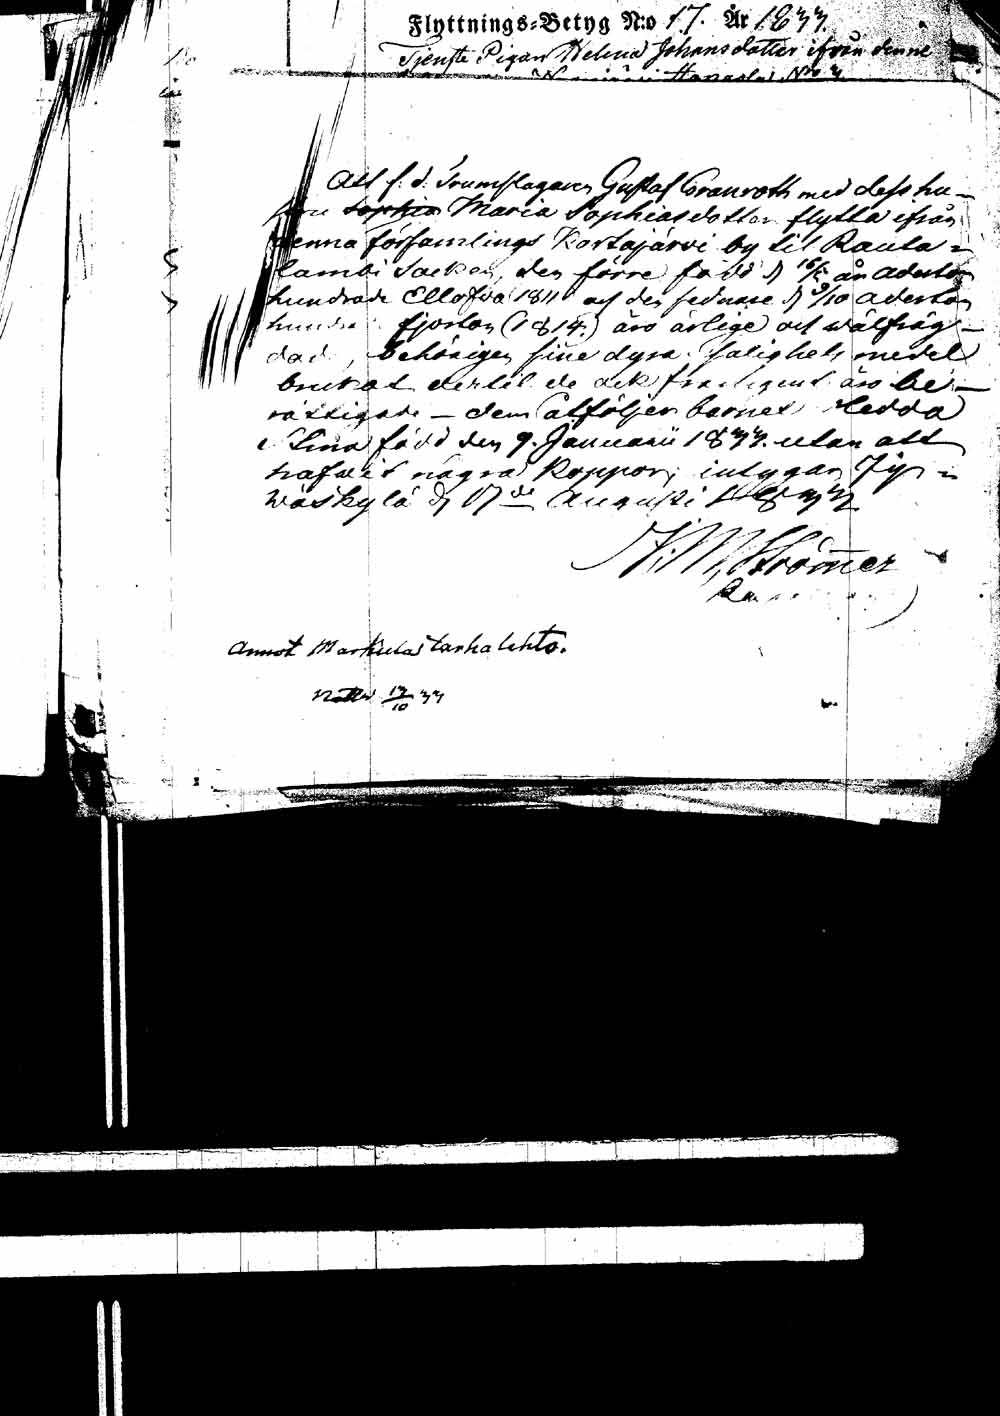 Flyttnings-Betyg N:o 17. År 1833.
Tjenste Pigan Helena Johansdotter ifrån denne
N:ro 3
Att f. d. Trumslagaren Gustaf Granroth med dess hu-
stru Maria Sophiasdotter flytta ifrån
denna församlings Kortajärvi by til Rauta-
lambi Socken, den förre född d 16/5 år aderton
hundrade Ellofva 1811 och den sednare d 9/10 aderton
hundra fjorton (1814.) äro ärlige och wälfräg-
dade, behörigen sine dyra salighets medel
brukat dertil de ock framgent äro be-
rättigade - dem åtföljer barnet Hedda
Elina född den 9. Januarii 1833. utan att
hafwit några Koppor; intygar Jy-
wäskylä d 17de Augusti 1833
K. M. Strömer
Annot Markula tarhalehto.
13/10 33